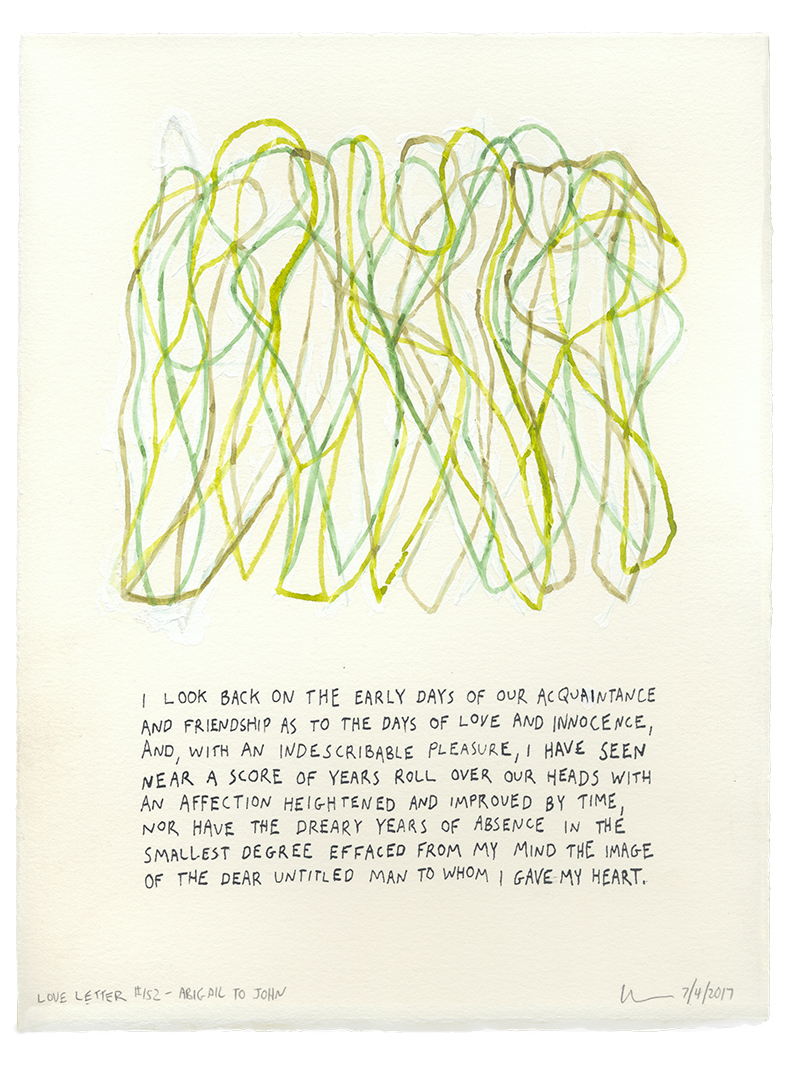 I LOOK BACK ON THE EARLY DAYS OF OUR ACQUAINTANCE
AND FRIENDSHIP AS TO THE DAYS OF LOVE AND INNOCENCE,
AND, WITH AN INDESCRIBABLE PLEASURE, I HAVE SEEN
NEAR A SCORE OF YEARS ROLL OVER OUR HEADS WITH
AN AFFECTION HEIGHTENED AND IMPROVED BY TIME,
NOR HAVE THE DREARY YEARS OF ABSENCE IN THE
SMALLEST DEGREE EFFACED FROM MY MIND THE IMAGE
OF THE DEAR UNTITLED MAN TO WHOM I GAVE MY HEART.
LOVE LETTER #152 - ABIGAIL TO JOHN
7/4/2017